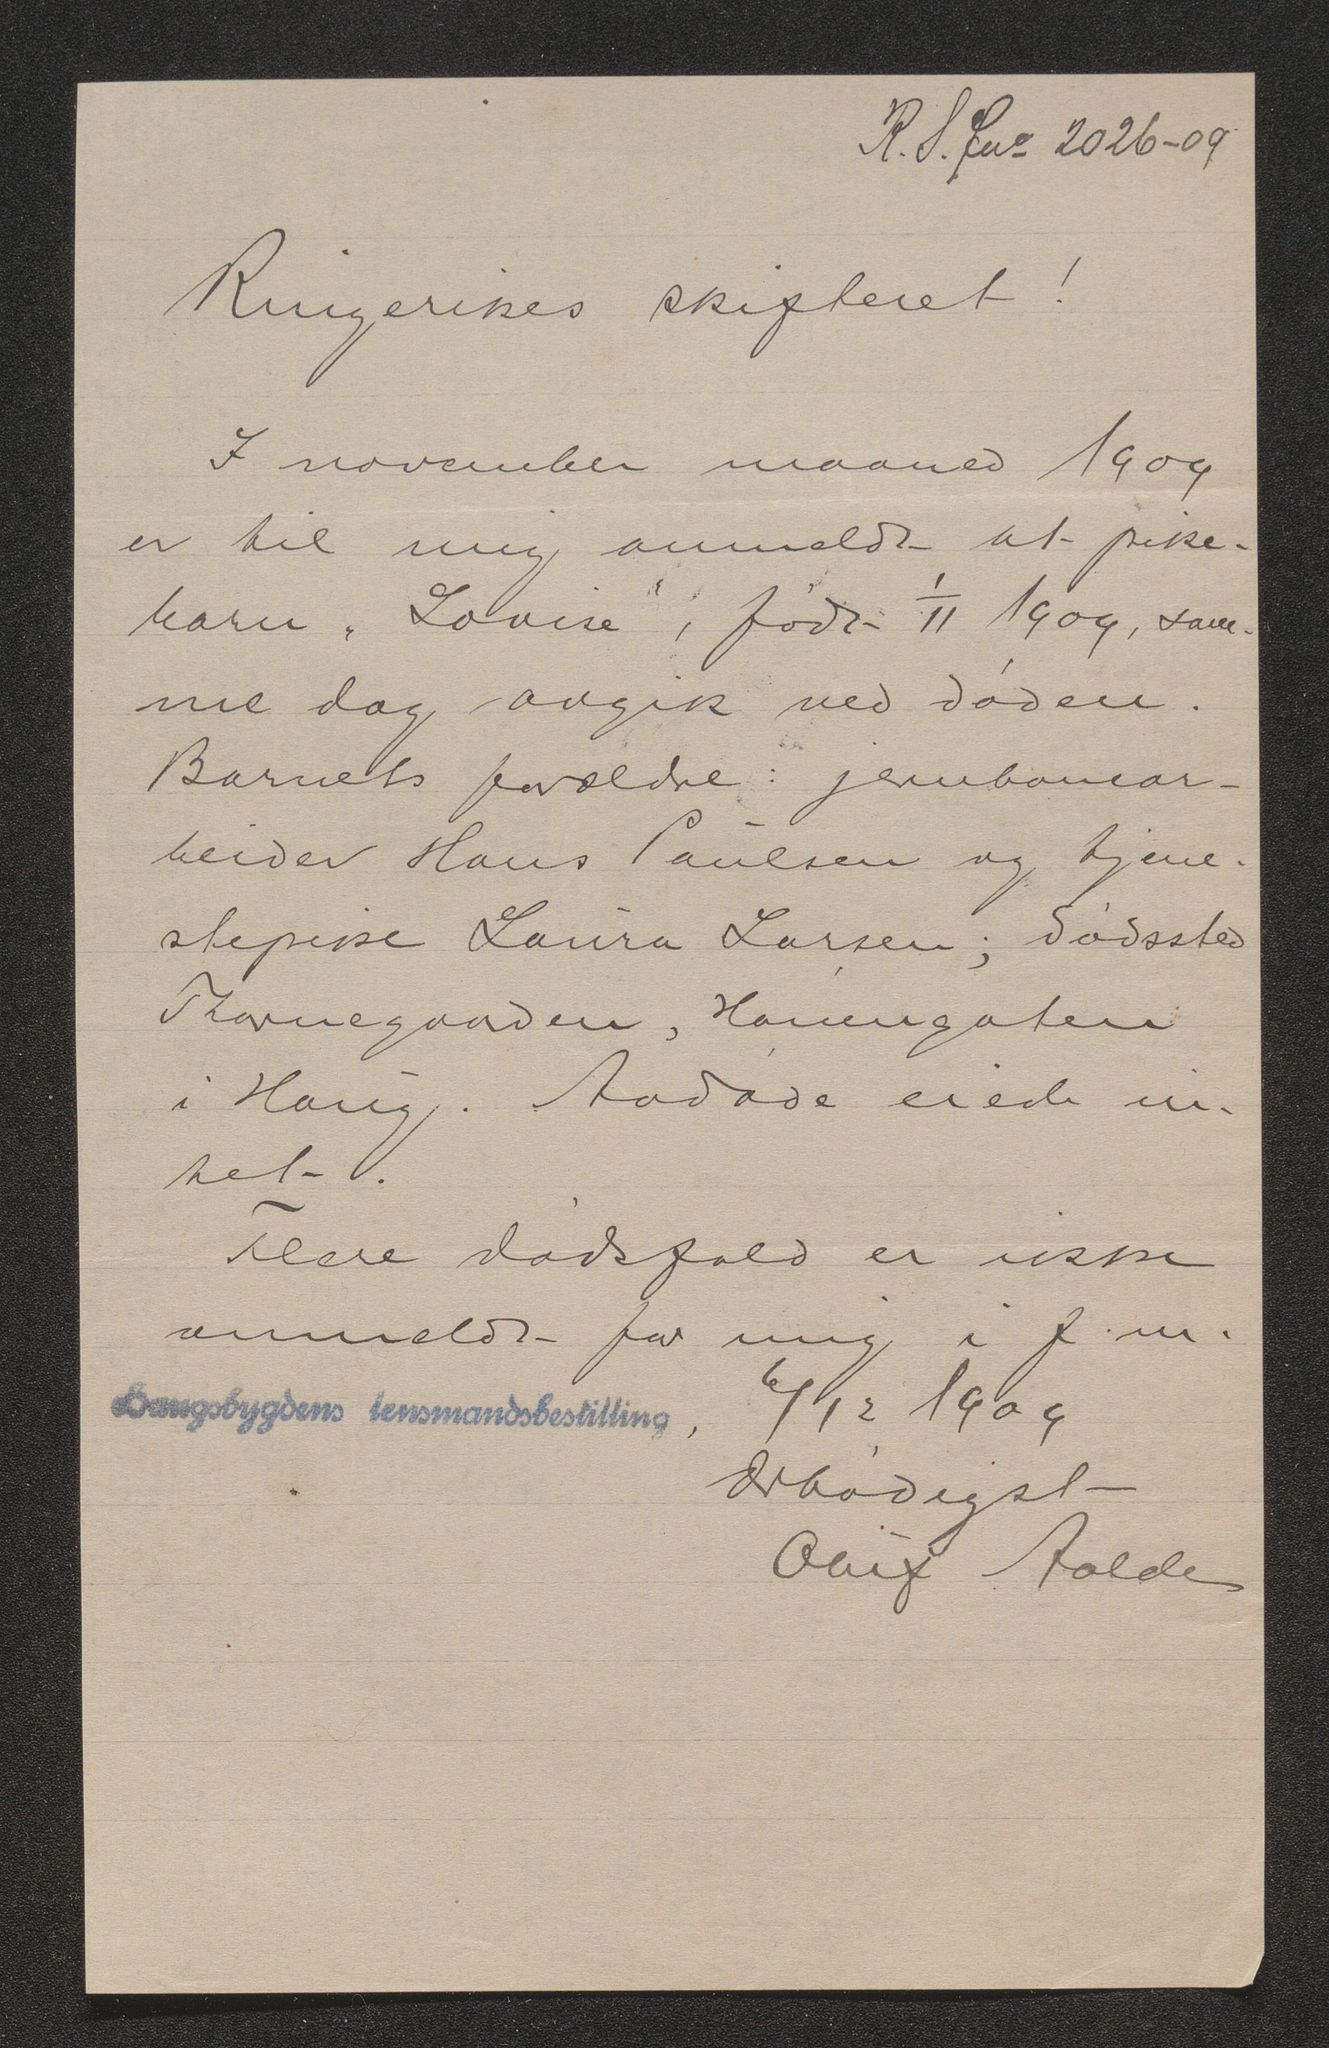 R. S. Jno 2026-09
Ringerikes skifteret!
I november maaned 1909
er til mig anmeldt at pike-
barn „Lovise“, født 1/11 1909, sam-
me dag avgik ved døden.
Barnets forældre: jernbanear-
beider Hans Paulsen og tjene-
stepike Laura Larsen; dødssted
Thornegaarden, Hønengaten
i Haug. Avdøde eiede in-
tet.
Flere dødsfald er ikke
anmeldt for mig i f. m.
Haugsbygdens lensmandsbestilling, 6/12 1909
Ærbødigst
Oluf